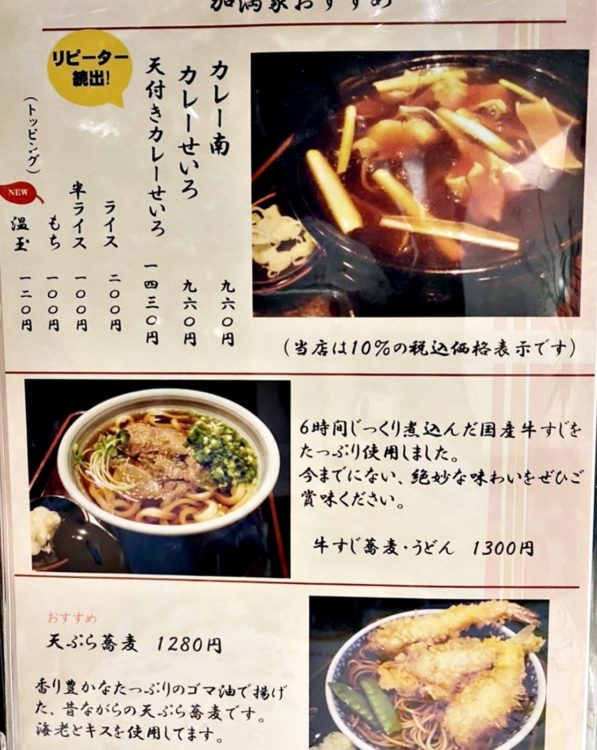 加満家おすすめ
リピーター
続出!
カレー南 九六〇円
カレーせいろ 九六〇円
天付きカレーせいろ 一四三〇円
ライス 二〇〇円
半ライス 一〇〇円
もち 一〇〇円
(トッピング)
NEW
温玉 一二〇円
(当店は10%の税込価格表示です)
6時間じっくり煮込んだ国産牛すじを
たっぷり使用しました。
今までにない、絶妙な味わいをぜひご
賞味ください。
牛すじ蕎麦・うどん 1300円
おすすめ
天ぷら蕎麦 1280円
香り豊かなたっぷりのゴマ油で揚げ
た、昔ながらの天ぷら蕎麦です。
海老とキスを使用してます。